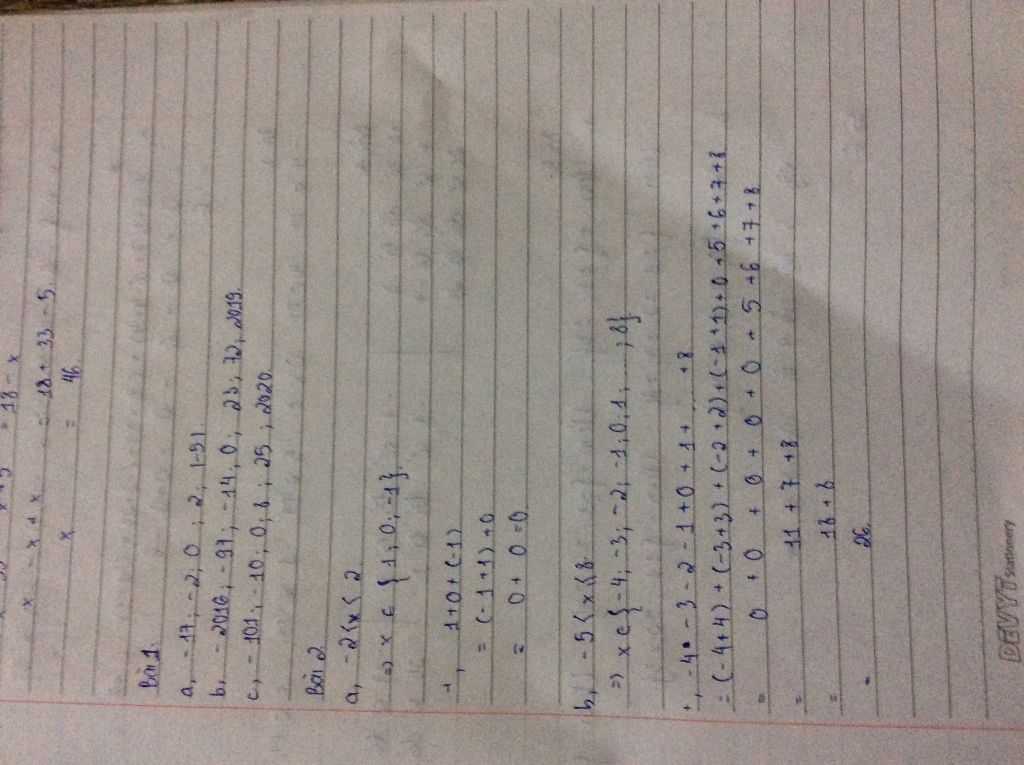 = 18 - x
x - x + x = 18 + 33 - 5.
x = 46
Bài 1.
a, -17; -2; 0; 2; |-5|
b, -2016; -97; -14; 0; 23; 72; 2019.
c, -101; -10; 0; 8; 25; 2020.
Bài 2
a, -2 < x < 2
=> x ∈ {1; 0; -1}.
+, 1+0+(-1)
= (-1+1)+0
= 0 + 0 = 0
b, -5 < x ≤ 8
=> x ∈ {-4; -3; -2; -1; 0; 1; ...; 8}
+, -4 - 3 - 2 - 1 + 0 + 1 + ... + 8
= (-4+4) + (-3+3) + (-2+2) + (-1+1) + 0 + 5 + 6 + 7 + 8
= 0 + 0 + 0 + 0 + 0 + 5 + 6 + 7 + 8
= 11 + 7 + 8
= 18 + 8
= 26.
DEVYT Stationery